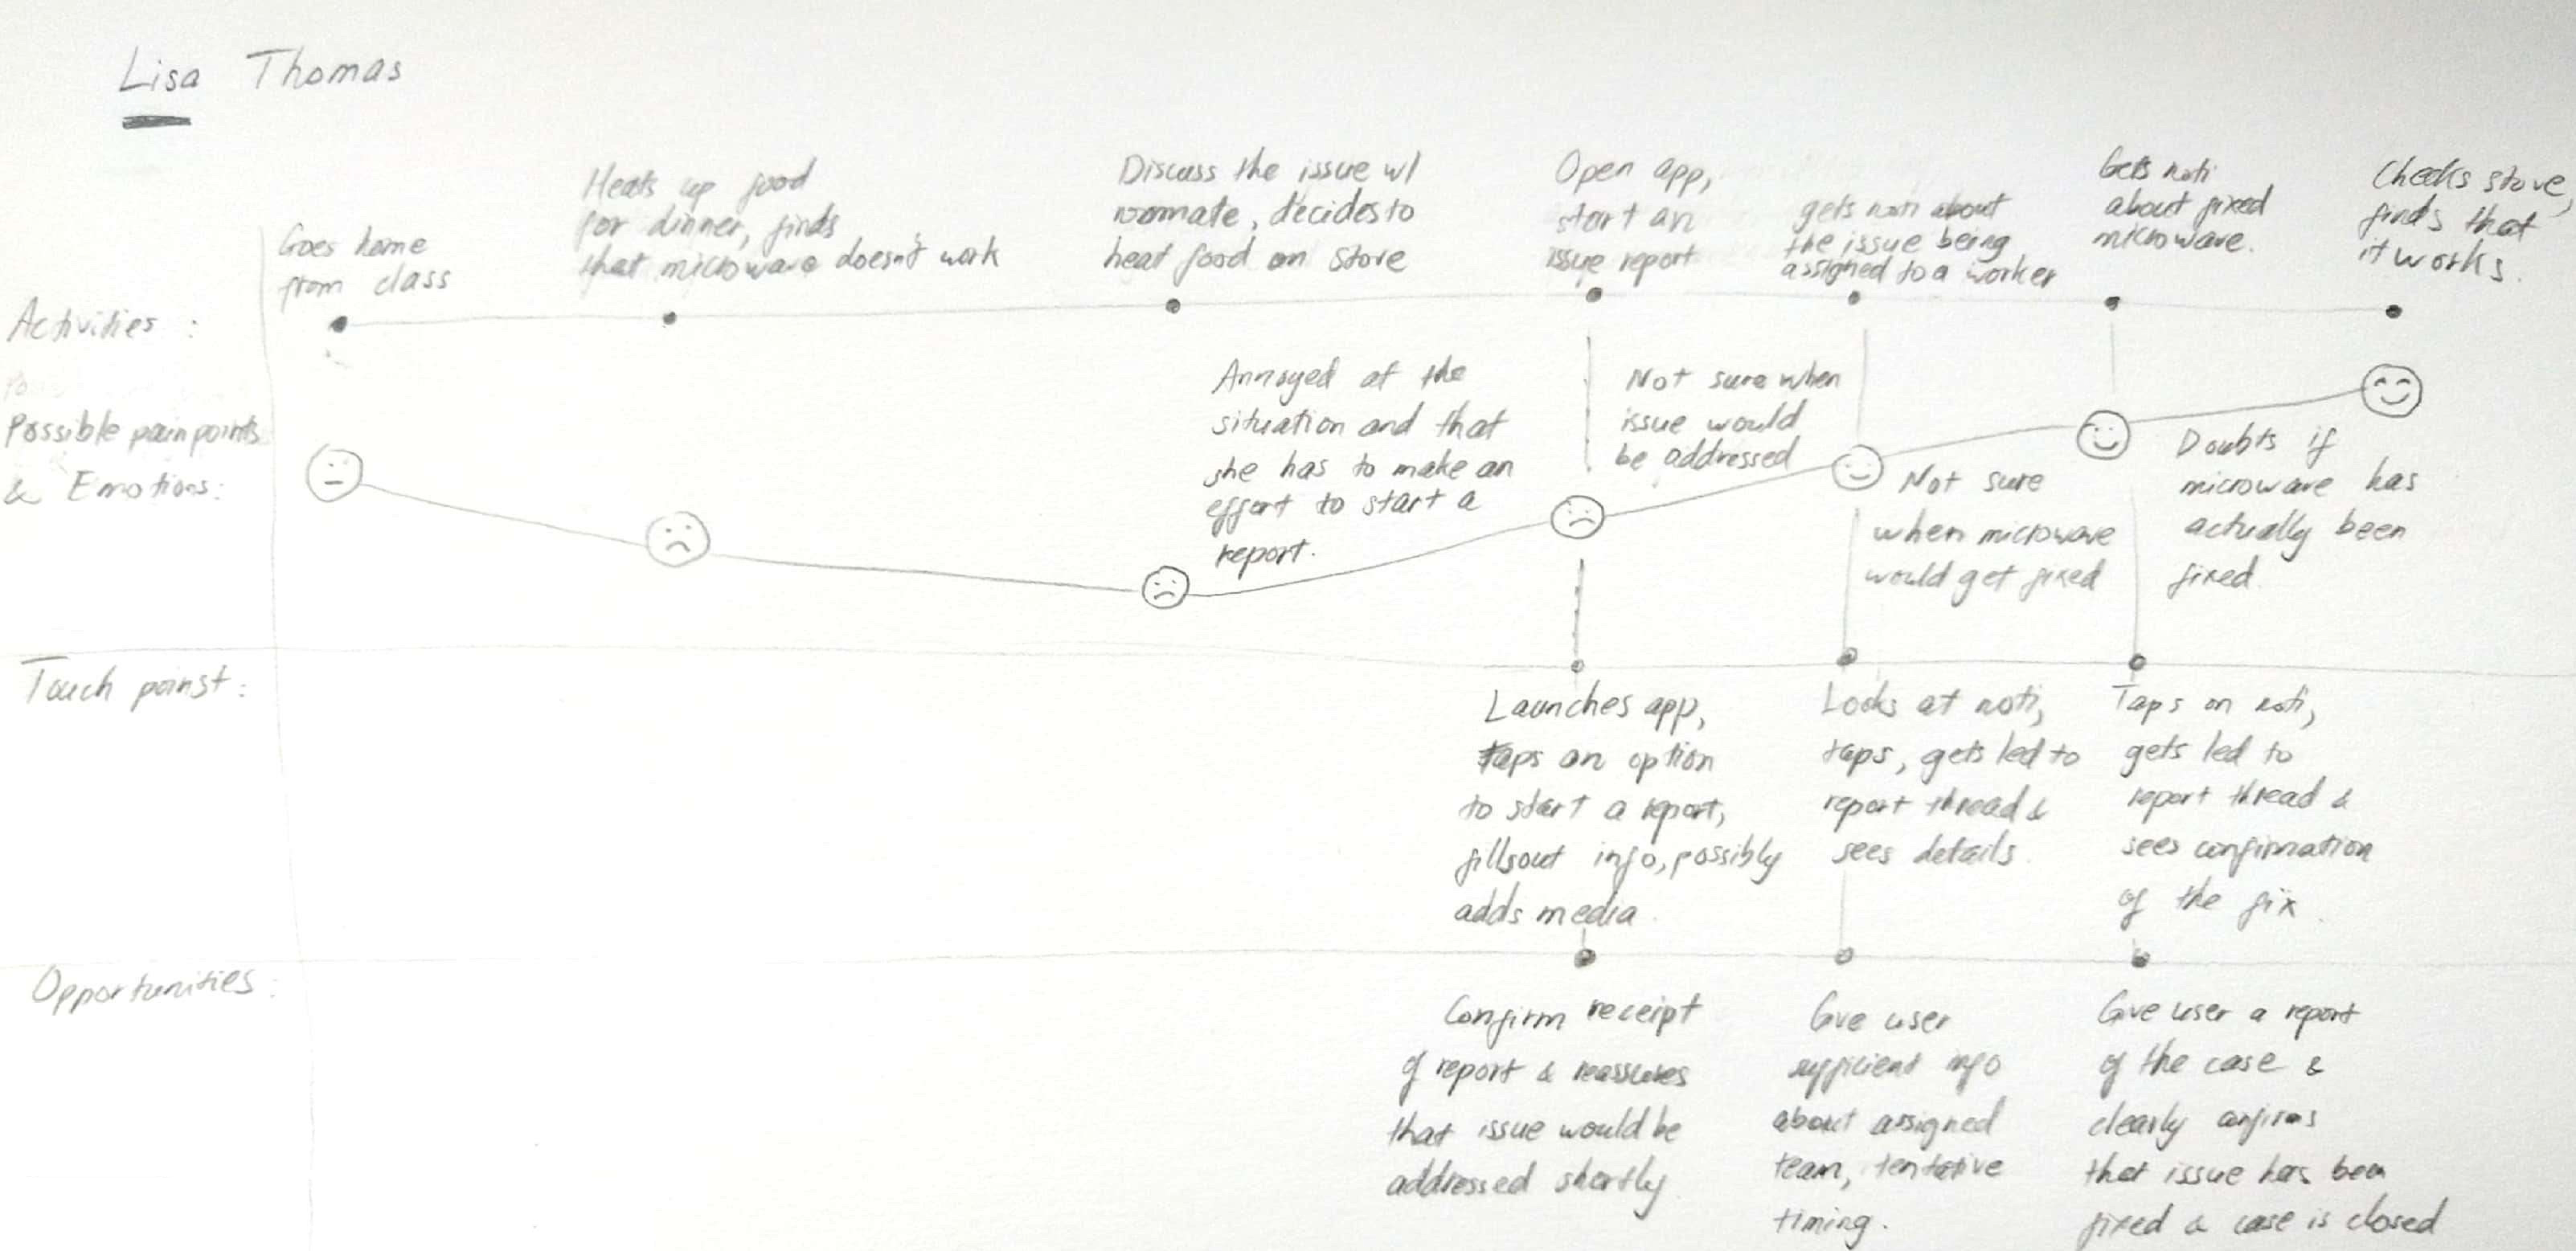 Lisa Thomas
Activities :
Goes home
from class
Heats up food
for dinner, finds
that microwave doesn't work
Discuss the issue w/
roomate, decides to
heat food on stove
Open app,
start an
issue report
gets noti about
the issue being
assigned to a worker
Gets noti
about fixed
microwave.
Checks stove,
finds that
it works.
Possible pain points
& Emotions:
Annoyed at the
situation and that
she has to make an
effort to start a
report.
Not sure when
issue would
be addressed
Not sure
when microwave
would get fixed
Doubts if
microwave has
actually been
fixed.
Touch poinst :
Launches app,
taps an option
to start a report,
fills out info, possibly
adds media.
Looks at noti,
taps, gets led to
report thread &
sees details.
Taps on noti,
gets led to
report thread &
sees confirmation
of the fix.
Opportunities :
Confirm receipt
of report & reassures
that issue would be
addressed shortly
Give user
sufficient info
about assigned
team, tentative
timing.
Give user a report
of the case &
clearly confirms
that issue has been
fixed & case is closed